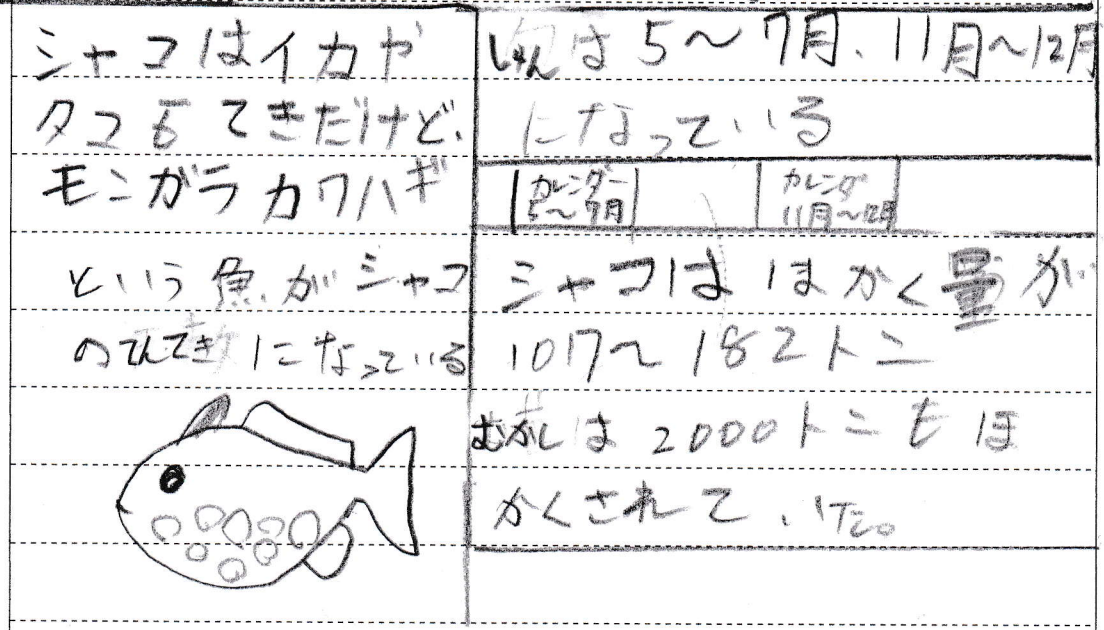 シャコはイカや
タコもてきだけど、
モンガラカワハギ
という魚がシャコ
のてんてきになっている
しゅんは5〜7月、11月〜12月
になっている
カレンダー
5〜7月
カレンダ
11月〜12月
シャコはほかく量が
1017〜182トン
むかしは2000トンもほ
かくされていた。